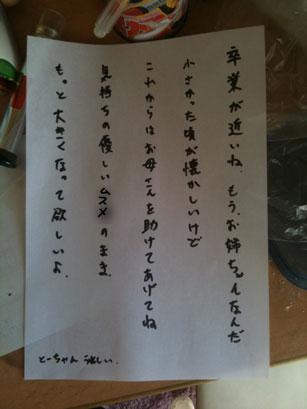 卒業が近いね、もう、お姉ちゃんなんだ
小さかった頃が懐かしいけど
これからはお母さんを助けてあげてね
気持ちの優しいムスメのまま、
もっと大きくなって欲しいよ。
とーちゃん 淋しい.